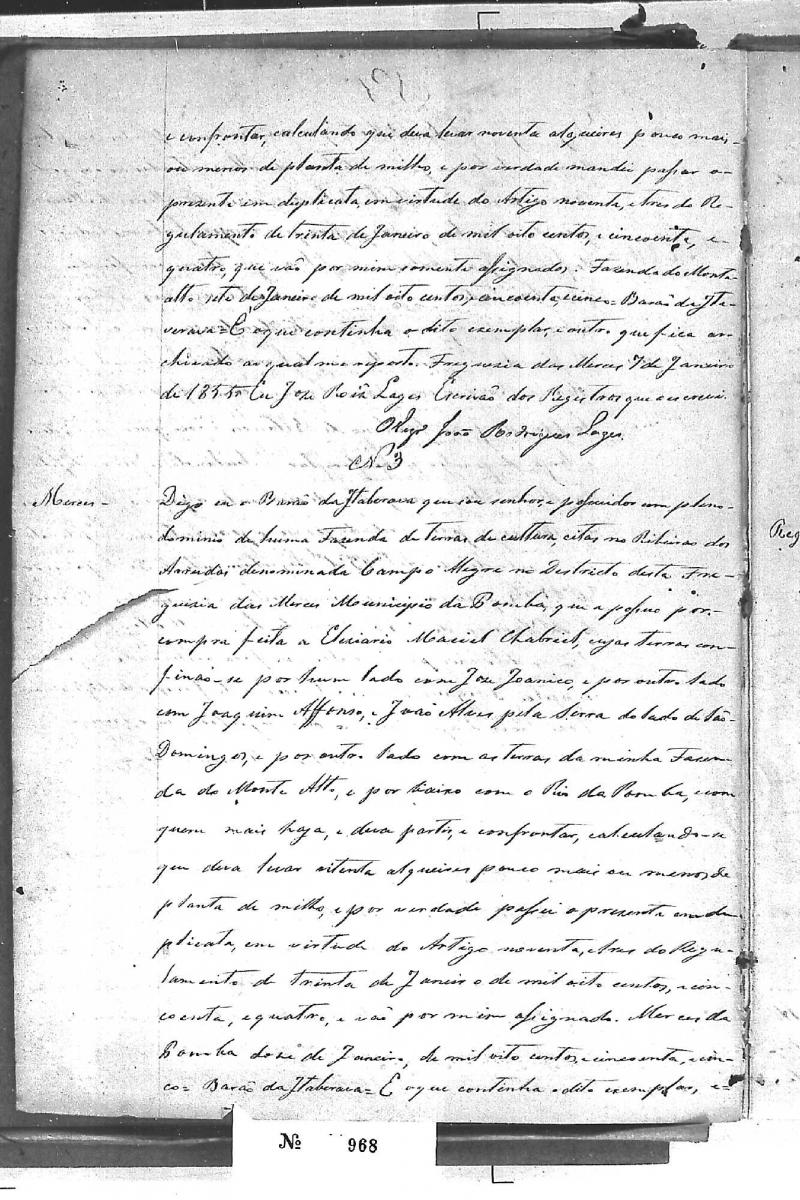 e confrontar, calculando que deva levar noventa alqueires pouco mais-
ou menos de planta de milho, e por verdade mandei passar o-
presente em duplicata, em virtude do Artigo noventa, e tres do Re-
gulamento de trinta de Janeiro de mil oito centos, e cincoenta, e-
quatro, que vão por mim somente assignados. Fazenda do Monte
alto sete de Janeiro de mil oito centos, cincoenta, e cinco= Barão da Ita-
verava= E o que continha o dito exemplar, e outro que fica ar-
chivado ao qual me reporto. Freguezia das Merces 7 de Janeiro
de 1855 Eu Joze Roiz Lages Escrivão dos Registros que o escrevi.
João Rodrigues Lages.
N. 3
Merces -
Digo eu o Barão da Itaberava que sou senhor, e possuidor em pleno-
dominio de huma Fazenda de terras de cultura, citas no Ribeirão dos
Arrudas denominada Campo Alegre no Destricto desta Fre-
guezia das Merces Municipio da Pomba, que a possuo por-
compra feita a Elziario Maciel Chabriel, cujas terras con-
finão-se por hum lado com Joze Joanico, e por outro lado
com Joaquim Affonso, e João Alves pela Serra do lado de São-
Domingos, e por outro lado com as terras da minha Fazen-
da do Monte Alto, e por baixo com o Rio da Pomba, e com
quem mais haja, e deva partir, e confrontar, calculando-se
que deva levar oitenta alqueires pouco mais ou menos de
planta de milho, e por verdade passei o presente em du-
plicata, em virtude do Artigo noventa, e tres do Regu-
lamento de trinta de Janeiro de mil oito centos, e cin-
coenta, e quatro, e vão por mim assignado. Merces da
Pomba doze de Janeiro, de mil oito centos, e cincoenta, e cin-
co= Barão da Itaberava= E o que continha o dito exemplar, e=
Reg
Nº 968